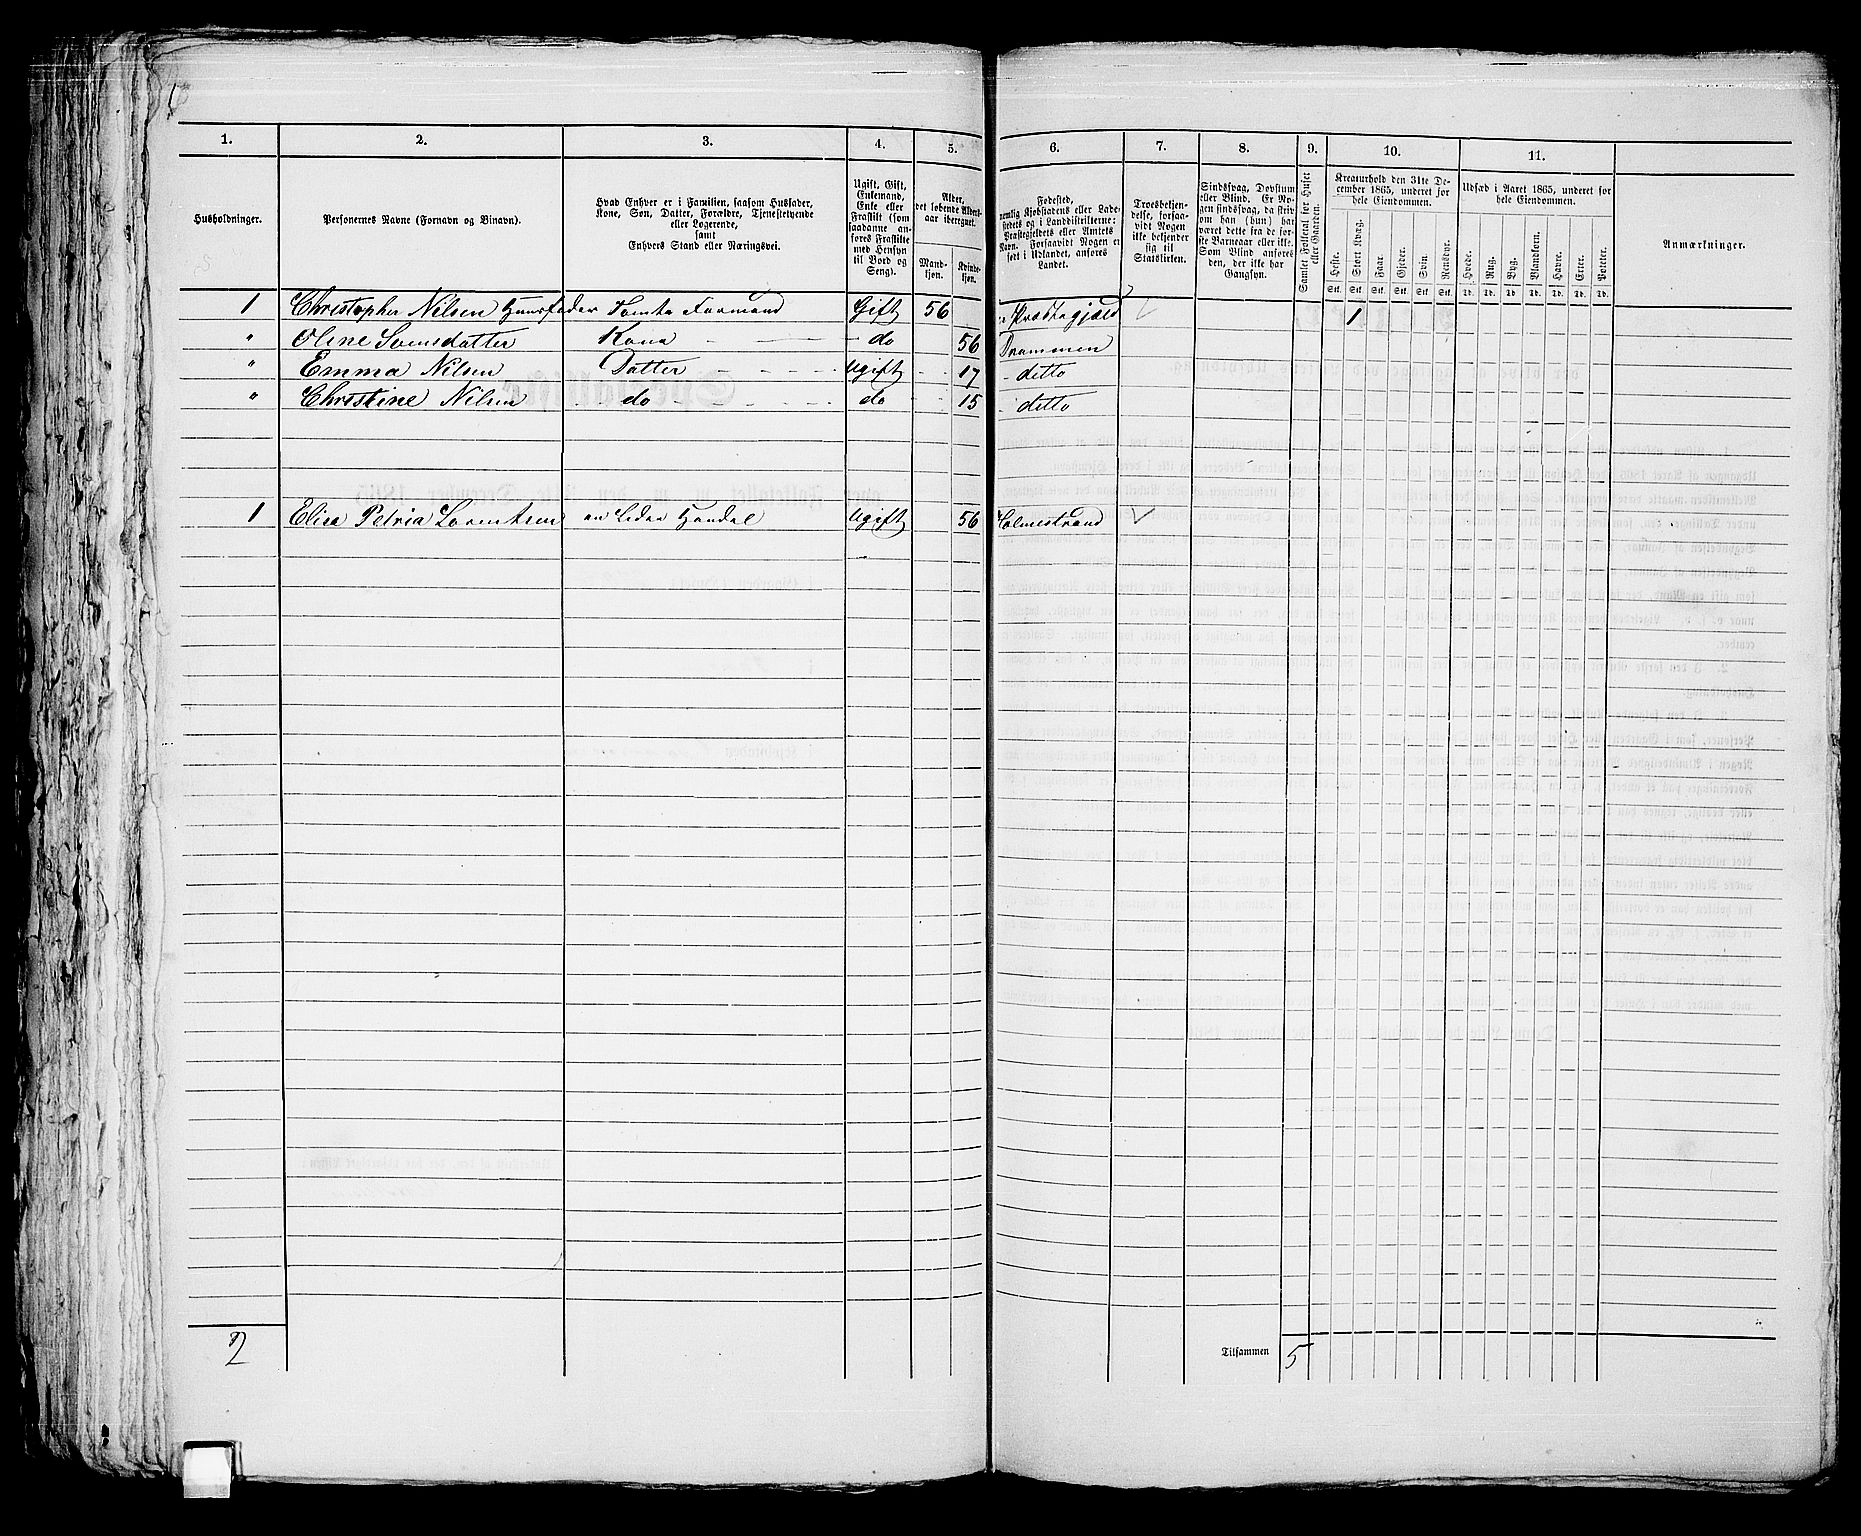 1. 2. 3. 4. 5. 6. 7. 8. 9. 10. 11.
Husholdninger.
Personernes Navne (Fornavn og Binavn).
Hvad Enhver er i Familien, saasom Husfader,
Kone, Søn, Datter, Forældre, Tjenestetyende
eller Logerende,
samt
Enhvers Stand eller Næringsvei.
Ugift, Gift,
Enkemand,
Enke eller
Fraskilt (som
saadanne an-
føres Fraskilte
med Hensyn
til Bord og
Seng).
Alder,
det løbende Alders-
aar iberegnet.
Mand-
kjøn.
Kvinde-
kjøn.
Fødested,
nemlig Kjøbstadens eller Lade-
stedets og i Landdistrikterne:
Præstegjeldets eller Amtets
Navn. Forsaavidt Nogen er
født i Udlandet, anføres
Landet.
Troesbekjen-
delse, forsaa-
vidt Nogen
ikke bekjender
sig til
Statskirken.
Sindssvag, Døvstum
eller Blind. Er No-
gen sindssvag, da skriv
om han (hun) har
været dette fra de før-
ste Barneaar eller ikke.
Som Blind anføres
den, der ikke har
Gangsyn.
Samlet Folketal for Huset
eller Gaarden.
Kreaturhold den 31te De-
cember 1865, underet for
hele Eiendommen.
Heste. Stort Kvæg. Faar. Gjeder. Svin. Rensdyr.
Stk. Stk. Stk. Stk. Stk. Stk.
Udsæd i Aaret 1865, underet for
hele Eiendommen.
Hvede. Rug. Byg. Blandkorn. Havre. Erter. Poteter.
Td. Td. Td. Td. Td. Td. Td.
Anmærkninger.
1 Christopher Nilsen Huusfader Tomte Formand Gift 56 Præstegjæld 1
" Oline Svensdatter Kone do 56 Drammen
" Emma Nilsen Datter Ugift 17 ditto
" Christine Nilsen do do 15 ditto
1 Elisa Petria Lorentsen Handel Ugift 56 Holmestrand
2
Tilsammen 5